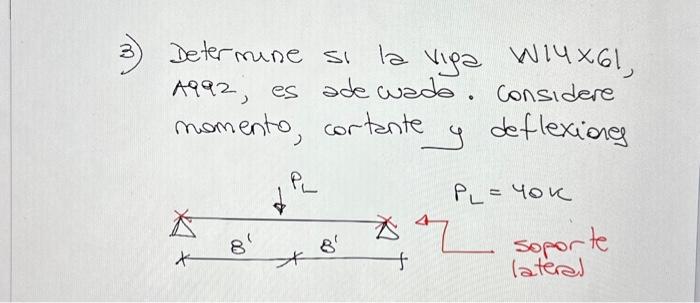 3) Determine si la viga W14x61,
A992, es adecuada. Considere
momento, cortante y deflexiones
PL
PL = 40K
8' 8'
soporte
lateral